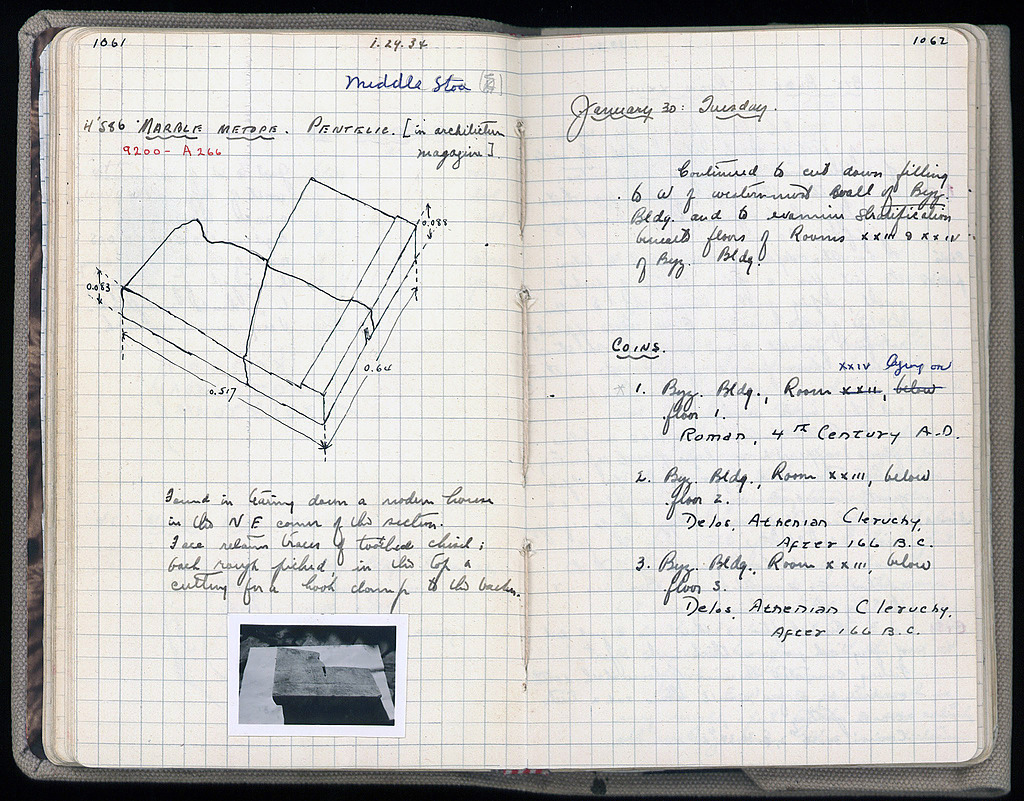 1061
1.29.34
Middle Stoa
H'586 MARBLE METOPE. PENTELIC. [in architecture
magazine].
9200 - A 266
0.088
0.083
0.64
0.517
Found in tearing down a modern house
in the NE corner of the section.
Face retains traces of toothed chisel;
back rough picked; in the top a
cutting for a hook clamp to the back.
1062
January 30: Tuesday.
Continued to cut down filling
to W of westernmost wall of Byz.
Bldg. and to examine stratification
beneath floors of Rooms XXIII & XXIV
of Byz. Bldg.
COINS.
XXIV lying on
1. Byz. Bldg., Room XXII, below
floor 1.
Roman, 4th Century A.D.
2. Byz. Bldg., Room XXIII, below
floor 2.
Delos, Athenian Cleruchy,
After 166 B.C.
3. Byz. Bldg., Room XXIII, below
floor 3.
Delos, Athenian Cleruchy,
After 166 B.C.